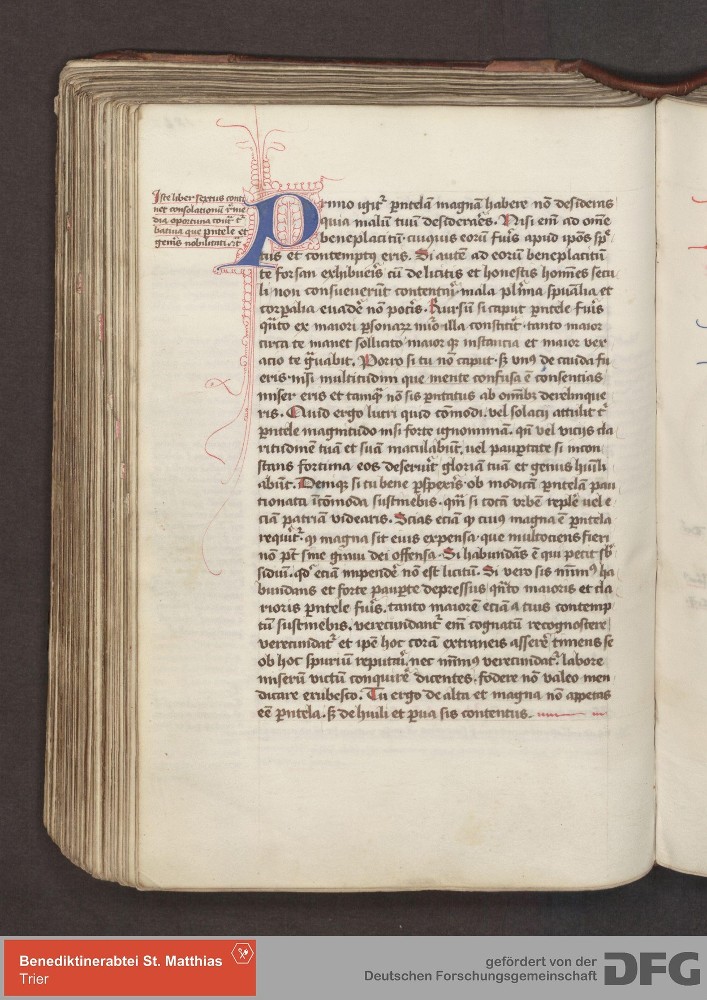 Iste liber sextus conti
net consolationū r̄me
dia oportuna cont̄
batiua que pntele et
genīs nobilitati
Primo igit̄ pntelā magnā habere nō desideras
quia malū tuū desiderares. Nisi em̄ ad om̄e
beneplacitū cuiuis eorū fuīs apud ipōs sp̄
tus et contemptꝯ eris. Si autē ad eorū beneplacitū
te forsan exhibueris cū de licitis et honestis homīes secu
li non consueuerūt contentari mala plīma spūalia et
corpalia euadē nō potis. Rursū si caput pntele fuīs
qn̄to ex maiori psonarꝝ nūo illa constitit. tanto maior
circa te manet sollicito maior qꝫ instantia et maior vex
acio te gͣuabit. Porro si tu nō caput. sꝫ vnꝯ de cauda fu
eris. nisi multitudini que mente confusa ē consentias
miser eris et tamqͣ nō sis pntatus ab om̄ibꝫ derelinque
ris. Quid ergo lucri quid cōmodi. vel solacii attulit t̄
pntele magnitudo nisi forte ignominiā. qn̄ vel viciis cla
ritudinē tuā et suā maculabūt. uel paupertate si incon
stans fortuna eos deseruīt gloriā tuā et genus huīli
abūt. Deniqꝫ si tu bene pspexeris. ob modicā pntelā pau
tionata icōmoda sustinebis. qm̄ si totā vrbē replē uel e
ciā patriā videaris. Scias eciā qꝫ cuiꝯ magna ē pntela
requīt̄. qꝫ magna sit eius expensa. que multociens fieri
nō pt̄ sine graui dei offensa. Si habundās ē qui petit sb̄
sidiū. qd̄ eciā impendē nō est licitū. Si vero sis minimꝯ ha
bundans et forte paupertate depressus qn̄to maioris et cla
rioris pntele fuīs. tanto maiorē eciā a tuis contemp
tū sustinebis. verecundant̄ em̄ cognatū recognoscere
verecundat̄ et ipē hoc corā extraneis asserē timens se
ob hoc spuriū reputari. nec minꝯ verecundat̄. labore
miserū victū conquirē dicentes. fodere nō valeo men
dicare erubesco. Tu ergo de alta et magna nō appetas
eē pntela. sꝫ de huīli et parua sis contentus.
Benediktinerabtei St. Matthias
Trier
gefördert von der
Deutschen Forschungsgemeinschaft
DFG